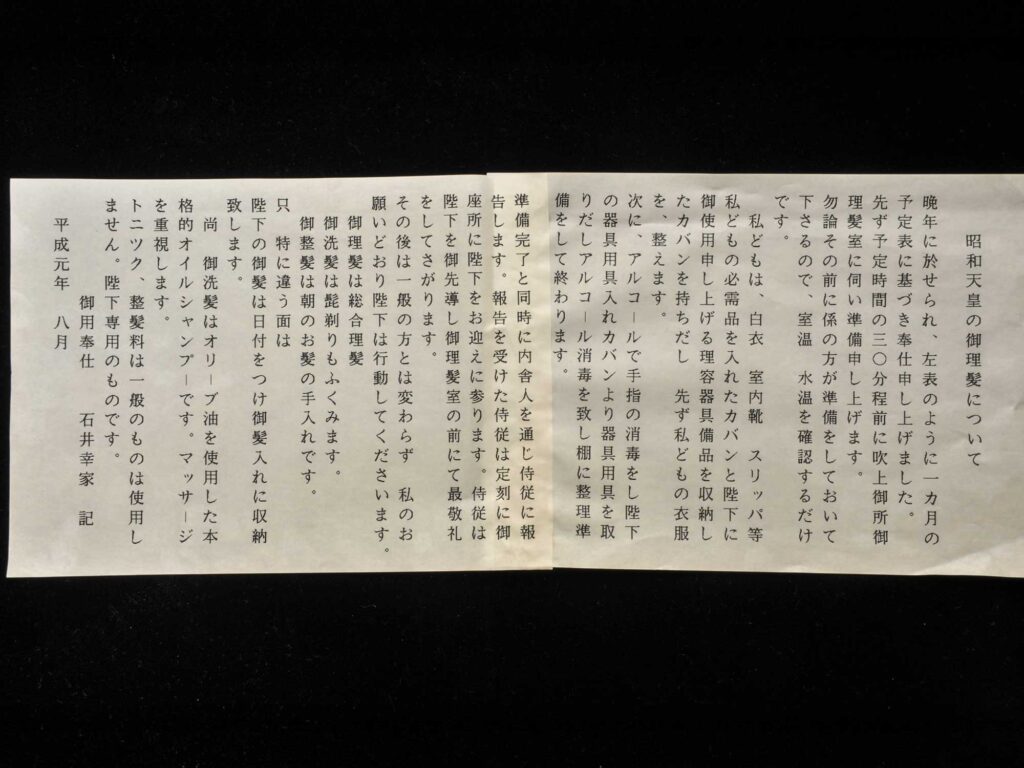 昭和天皇の御理髪について
晩年に於せられ、左表のように一カ月の
予定表に基づき奉仕申し上げました。
先ず予定時間の三〇分程前に吹上御所御
理髪室に伺い準備申し上げます。
勿論その前に係の方が準備をしておいて
下さるので、室温　水温を確認するだけ
です。
私どもは、白衣　室内靴　スリッパ等
私どもの必需品を入れたカバンと陛下に
御使用申し上げる理容器具備品を収納し
たカバンを持ちだし　先ず私どもの衣服
を、整えます。
次に、アルコールで手指の消毒をし陛下
の器具用具入れカバンより器具用具を取
りだしアルコール消毒を致し棚に整理準
備をして終わります。
準備完了と同時に内舎人を通じ侍従に報
告します。報告を受けた侍従は定刻に御
座所に陛下をお迎えに参ります。侍従は
陛下を御先導し御理髪室の前にて最敬礼
をしてさがります。
その後は一般の方とは変わらず　私のお
願いどおり陛下は行動してくださいます。
御理髪は総合理髪
御洗髪は髭剃りもふくみます。
御整髪は朝のお髪の手入れです。
只　特に違う面は
陛下の御髪は日付をつけ御髪入れに収納
致します。
尚　御洗髪はオリーブ油を使用した本
格的オイルシャンプーです。マッサージ
を重視します。
トニツク、整髪料は一般のものは使用し
ません。陛下専用のものです。
御用奉仕　石井幸家　記
平成元年　八月